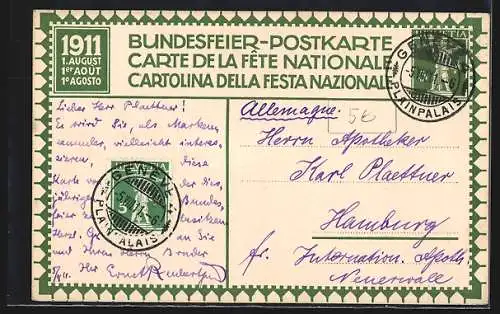 1911
1. AUGUST
1er AOUT
1o AGOSTO
BUNDESFEIER-POSTKARTE
CARTE DE LA FÊTE NATIONALE
CARTOLINA DELLA FESTA NAZIONALE
HELVETIA
GENÈVE
PLAINPALAIS
Lieber Herr Plaettner!
Es wird Sie, als Marken
sammler, vielleicht interes
sieren, diese
Karte vom der dies
jährigen Bundes
feier zu besitzen
Herzl. an Sie
und Ihren
Ihr Ernst
GENÈVE
PLAINPALAIS
Allemagne.
50
Herrn Apotheker
Karl Plaettner
Hamburg
fr. Internation. Apoth.
Neuerwall